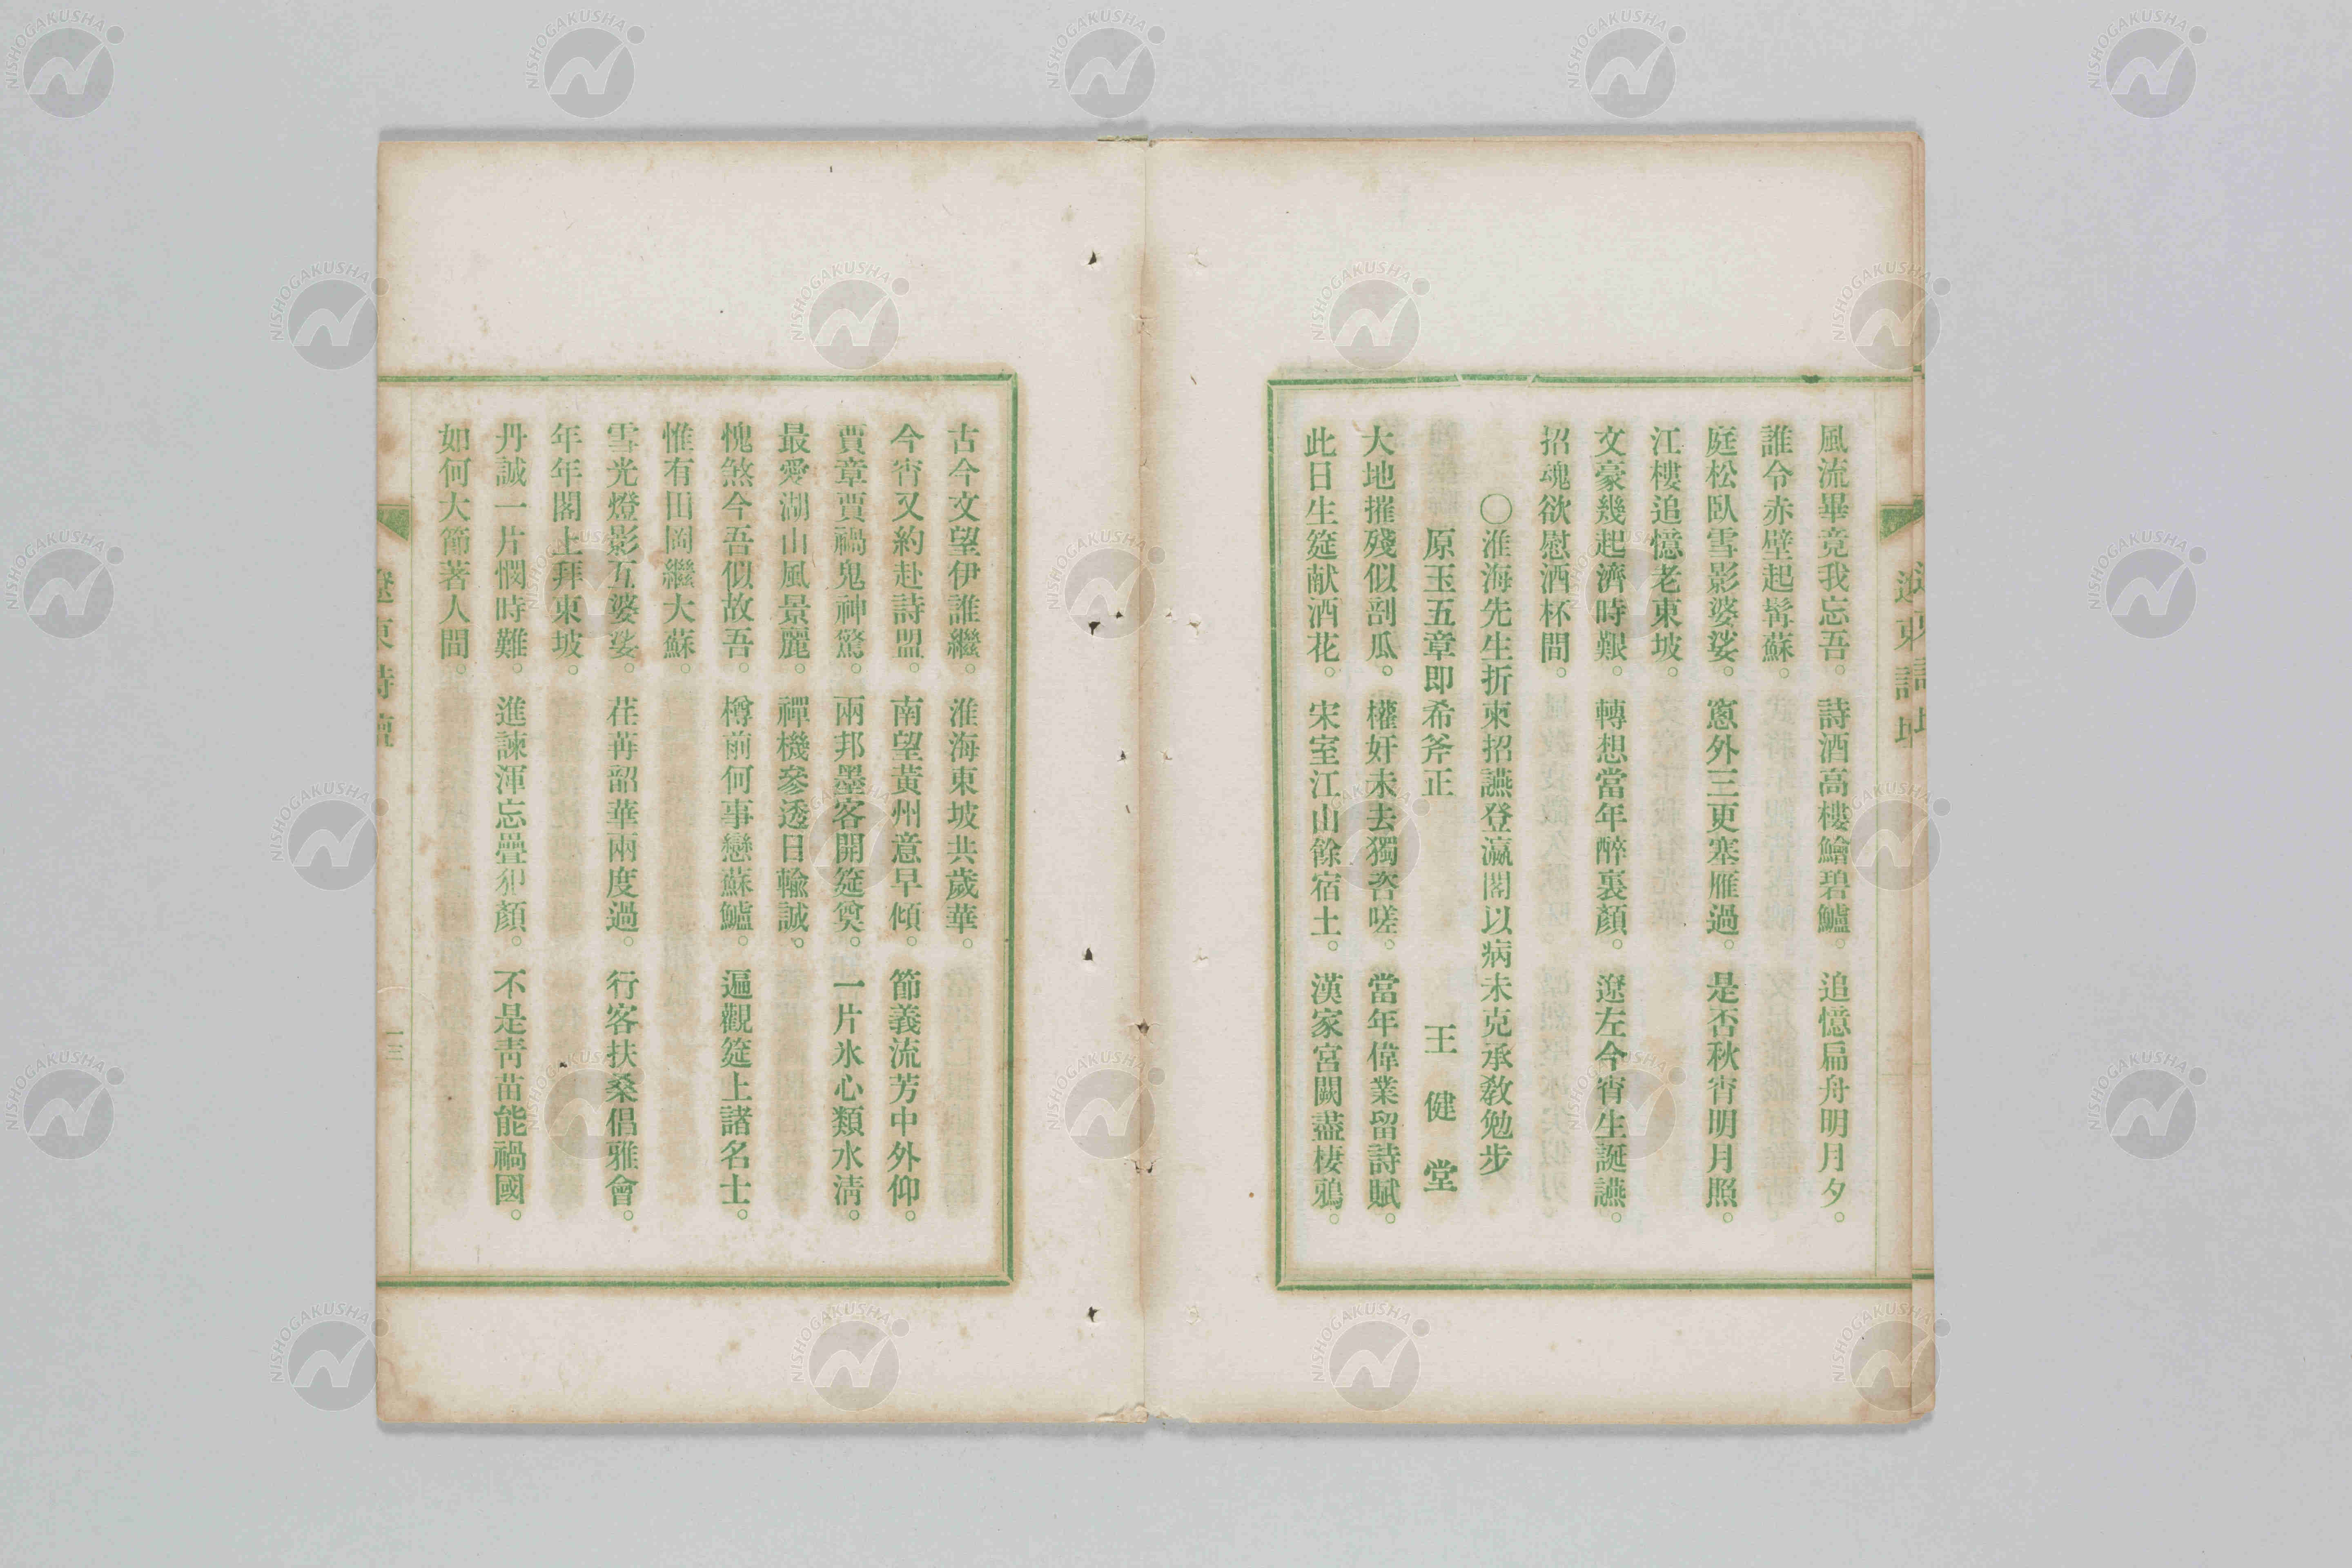 風流畢竟我忘吾。詩酒高樓鱠碧鱸。追憶扁舟明月夕。
誰令赤壁起髯蘇。
庭松臥雪影婆娑。窻外三更塞雁過。是否秋宵明月照。
江樓追憶老東坡。
文豪幾起濟時艱。轉想當年醉裏顏。遼左今宵生誕讌。
招魂欲慰酒杯間。
〇淮海先生折柬招讌登瀛閣以病未克承敎勉步
原玉五章即希斧正 王健堂
大地摧殘似剖瓜。權奸未去獨咨嗟。當年偉業留詩賦。
此日生筵献酒花。宋室江山餘宿土。漢家宮闕盡棲鴉。
古今文望伊誰繼。淮海東坡共歲華。
今宵又約赴詩盟。南望黃州意早傾。節義流芳中外仰。
賈章賈禍鬼神驚。兩邦墨客開筵奠。一片氷心類水淸。
最愛湖山風景麗。禪機參透日輸誠。
愧煞今吾似故吾。樽前何事戀蘇鱸。遍觀筵上諸名士。
惟有田岡繼大蘇。
雪光燈影互婆娑。荏苒韶華兩度過。行客扶桑倡雅會。
年年閣上拜東坡。
丹誠一片憫時難。進諫渾忘疊犯顏。不是靑苗能禍國。
如何大節著人間。
遼東詩壇
一三
NISHOGAKUSHA